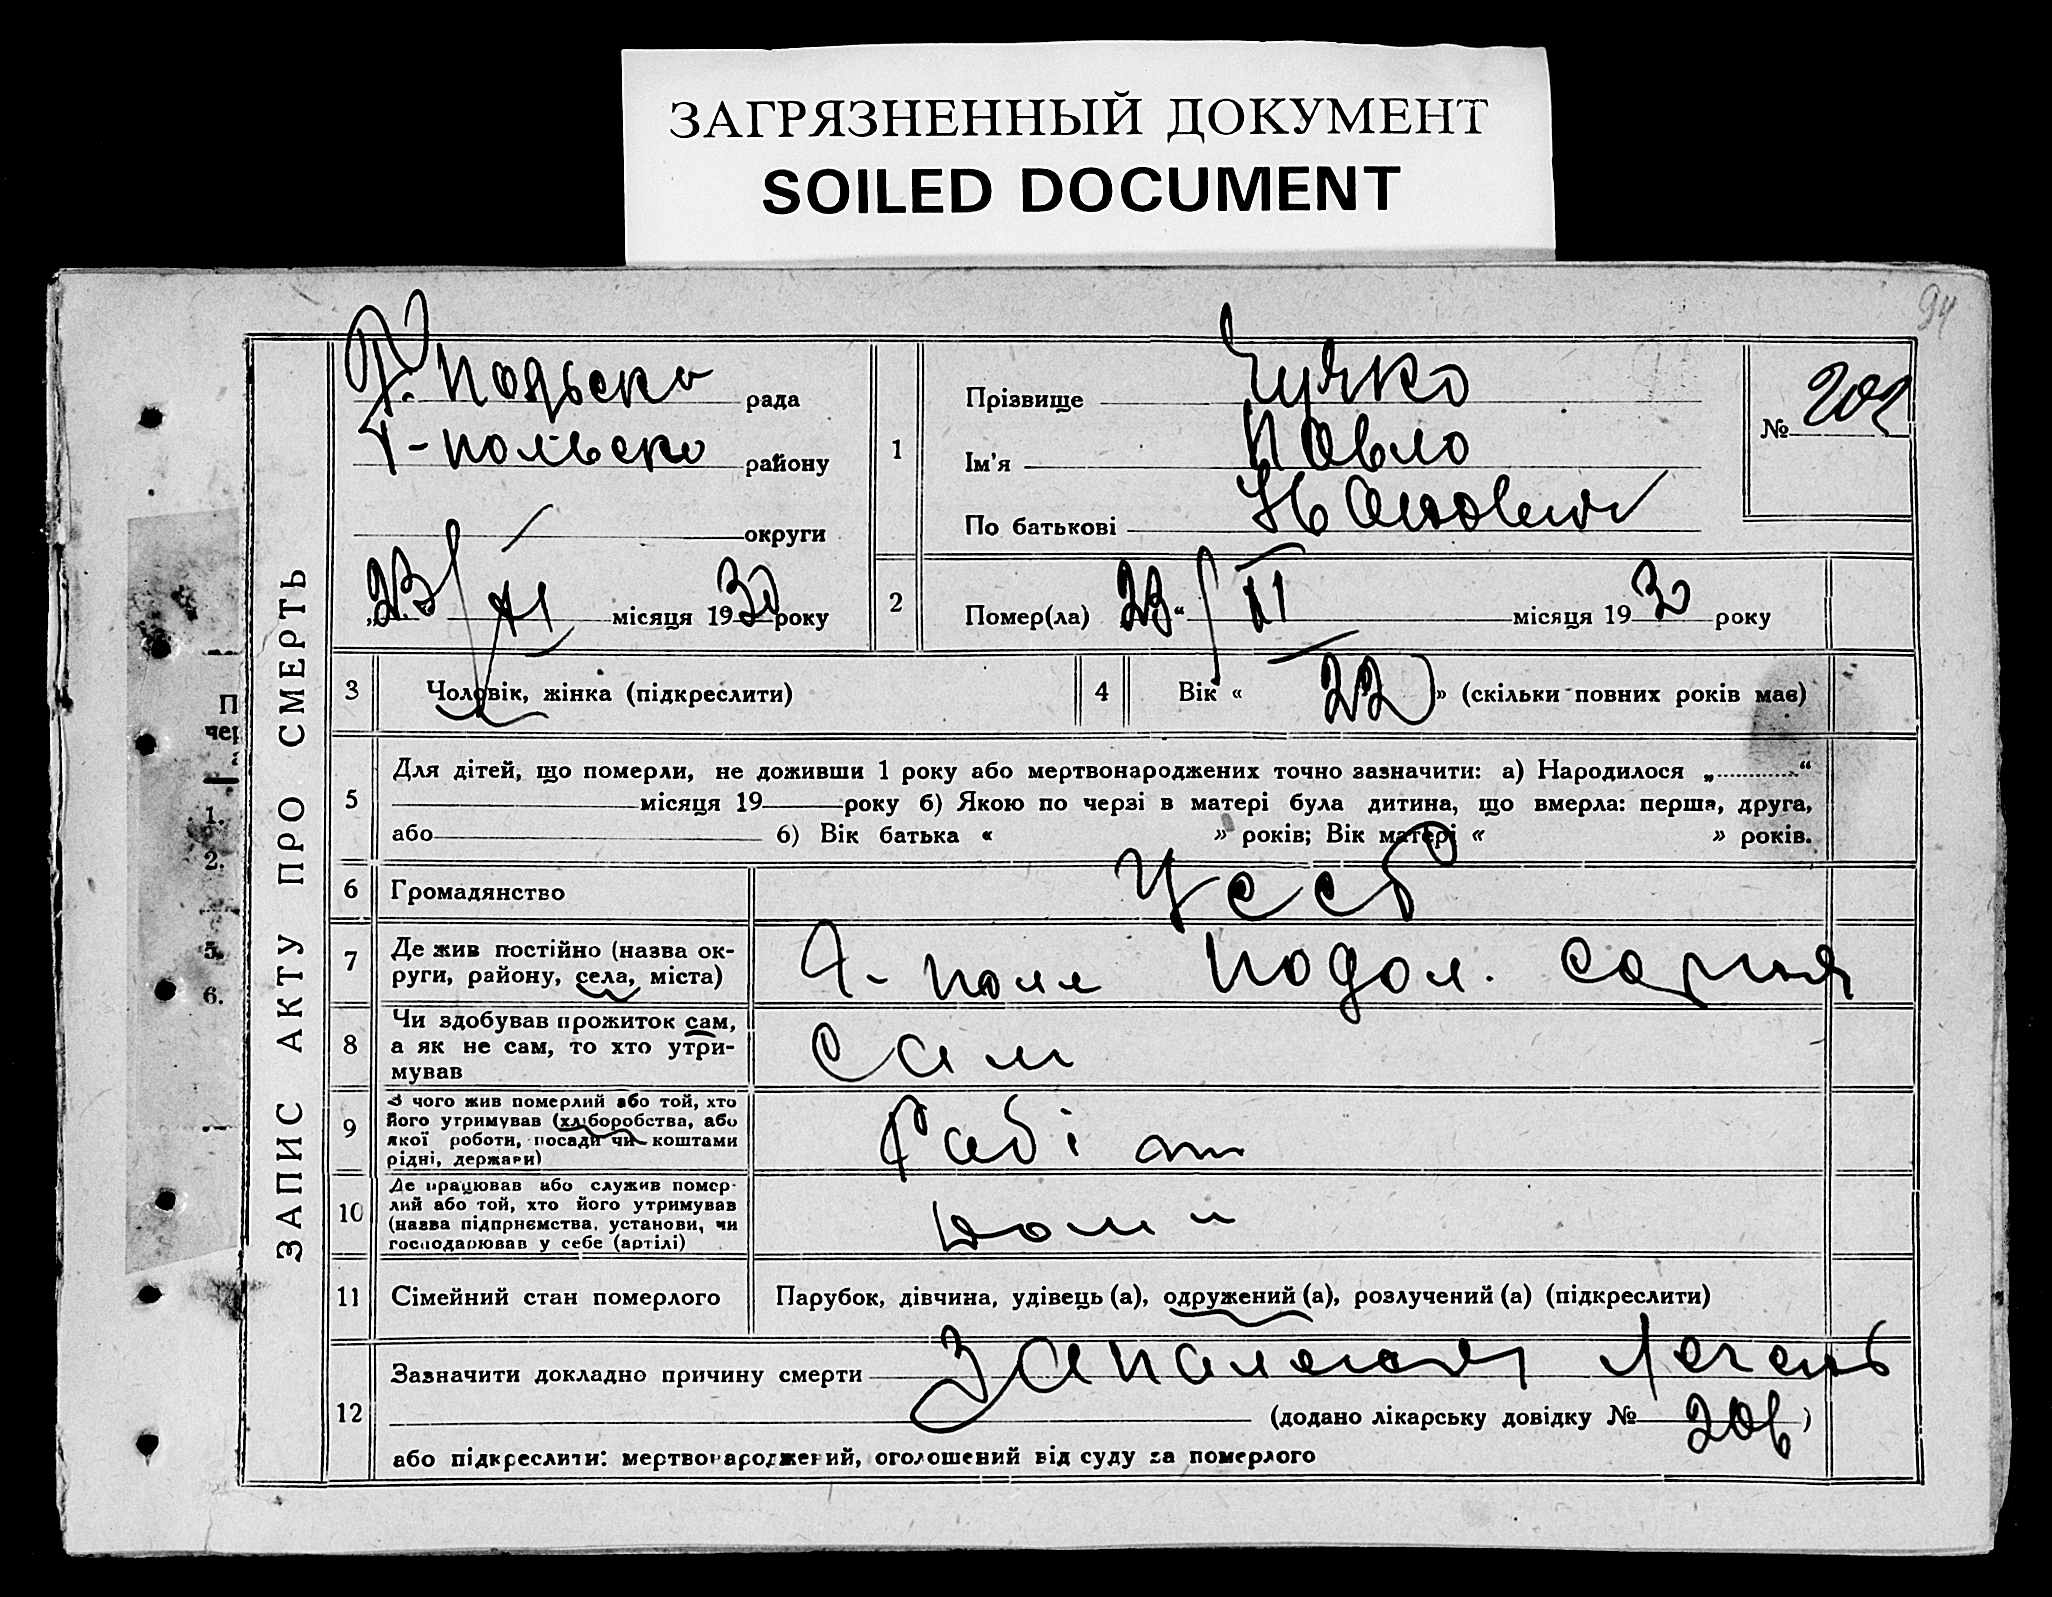 ЗАГРЯЗНЕННЫЙ ДОКУМЕНТ
SOILED DOCUMENT
94
ЗАПИС АКТУ ПРО СМЕРТЬ
рада
-польско району
округи
„23 XI місяця 1930 року
1
Прізвище
Ім'я Павло
По батькові
№ 202
2
Помер(ла) 23“ XI місяця 1930 року
3 Чоловік, жінка (підкреслити)
4 Вік « 22 » (скільки повних років має)
5
Для дітей, що померли, не доживши 1 року або мертвонароджених точно зазначити: а) Народилося „ “
місяця 19 року б) Якою по черзі в матері була дитина, що вмерла: перша, друга,
або 6) Вік батька « » років; Вік матері « » років.
6 Громадянство УССР
7 Де жив постійно (назва ок-
руги, району, села, міста)
-поля Подол.
8 Чи здобував прожиток сам,
а як не сам, то хто утри-
мував
сам
9 З чого жив померлий або той, хто
його утримував (хліборобства, або
якої роботи, посади чи коштами
рідні, держави)
Робіт
10 Де працював або служив помер-
лий або той, хто його утримував
(назва підприємства, установи, чи
господарював у себе (артілі)
дома
11 Сімейний стан померлого
Парубок, дівчина, удівець (а), одружений (а), розлучений (а) (підкреслити)
12
Зазначити докладно причину смерти Запалення
(додано лікарську довідку № )
або підкреслити: мертвонароджений, оголошений від суду за померлого
П
чер
1.
2.
5.
6.